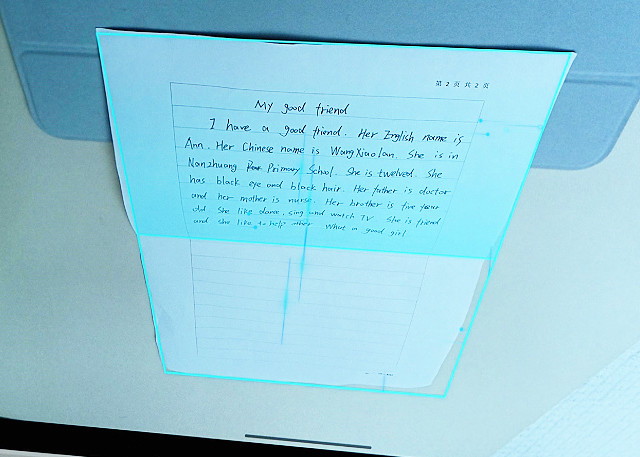 第 2 页 共 2 页
My good friend
I have a good friend. Her English name is
Ann. Her Chinese name is Wang Xiaolan. She is in
Nanzhuang Primary School. She is twelved. She
has black eye and black hair. Her father is doctor
and her mother is nurse. Her brother is five year
old She like dance, sing and watch TV She is friend
and she like to help other What a good girl